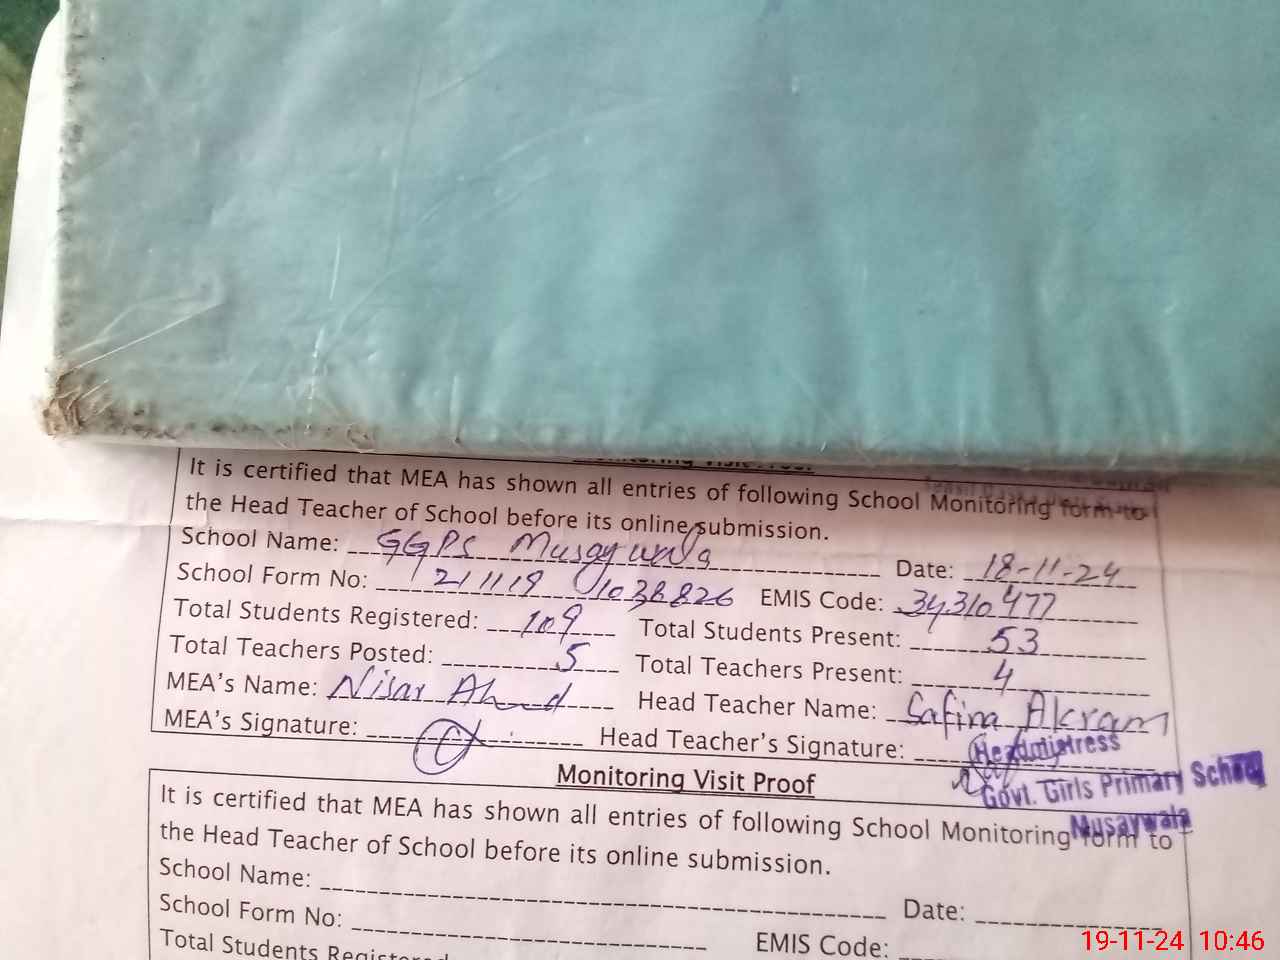 Monitoring Visit Proof
It is certified that MEA has shown all entries of following School Monitoring form to
the Head Teacher of School before its online submission.
School Name: GGPS Musaywala Date: 18-11-24
School Form No: 211119 01038826 EMIS Code: 34310477
Total Students Registered: 109 Total Students Present: 53
Total Teachers Posted: 5 Total Teachers Present: 4
MEA's Name: Nisar Ahmad Head Teacher Name: Safina Akram
MEA's Signature: Head Teacher's Signature:
Headmistress
Govt. Girls Primary School
Musaywala
Monitoring Visit Proof
It is certified that MEA has shown all entries of following School Monitoring form to
the Head Teacher of School before its online submission.
School Name: Date:
School Form No: EMIS Code:
Total Students Registered:
19-11-24 10:46